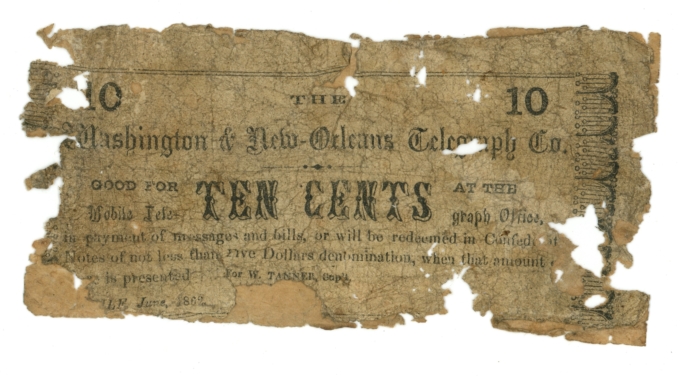 10 THE 10
Washington & New-Orleans Telegraph Co.
GOOD FOR TEN CENTS AT THE
Mobile Tele- graph Office,
in payment of messages and bills, or will be redeemed in Confed
Notes of not less than Five Dollars denomination, when that amount
is presented For W. TANNER, Cop't.
LE, June, 1862.